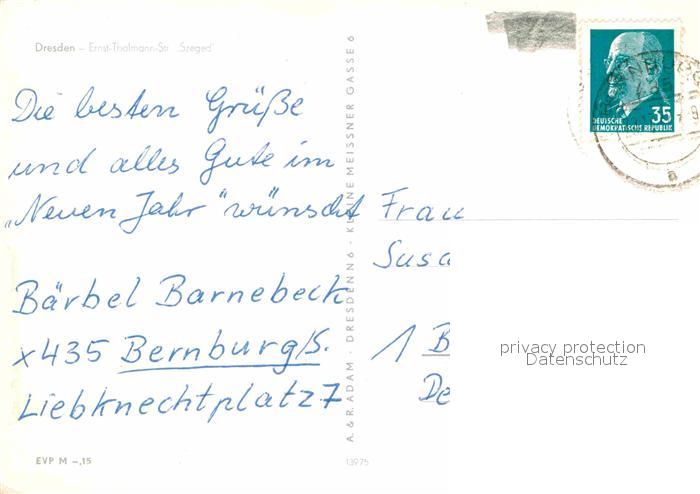 Dresden – Ernst-Thälmann-Str. „Szeged"
Die besten Grüße
und alles Gute im
„Neuen Jahr" wünscht
Bärbel Barnebeck
x435 Bernburg/S.
Liebknechtplatz 7
EVP M –,15
A. & R. ADAM · DRESDEN N 6 · KLEINE MEISSNER GASSE 6
13975
35
DEUTSCHE
DEMOKRATISCHE REPUBLIK
a
Frau
Susa
1 B
De
privacy protection
Datenschutz